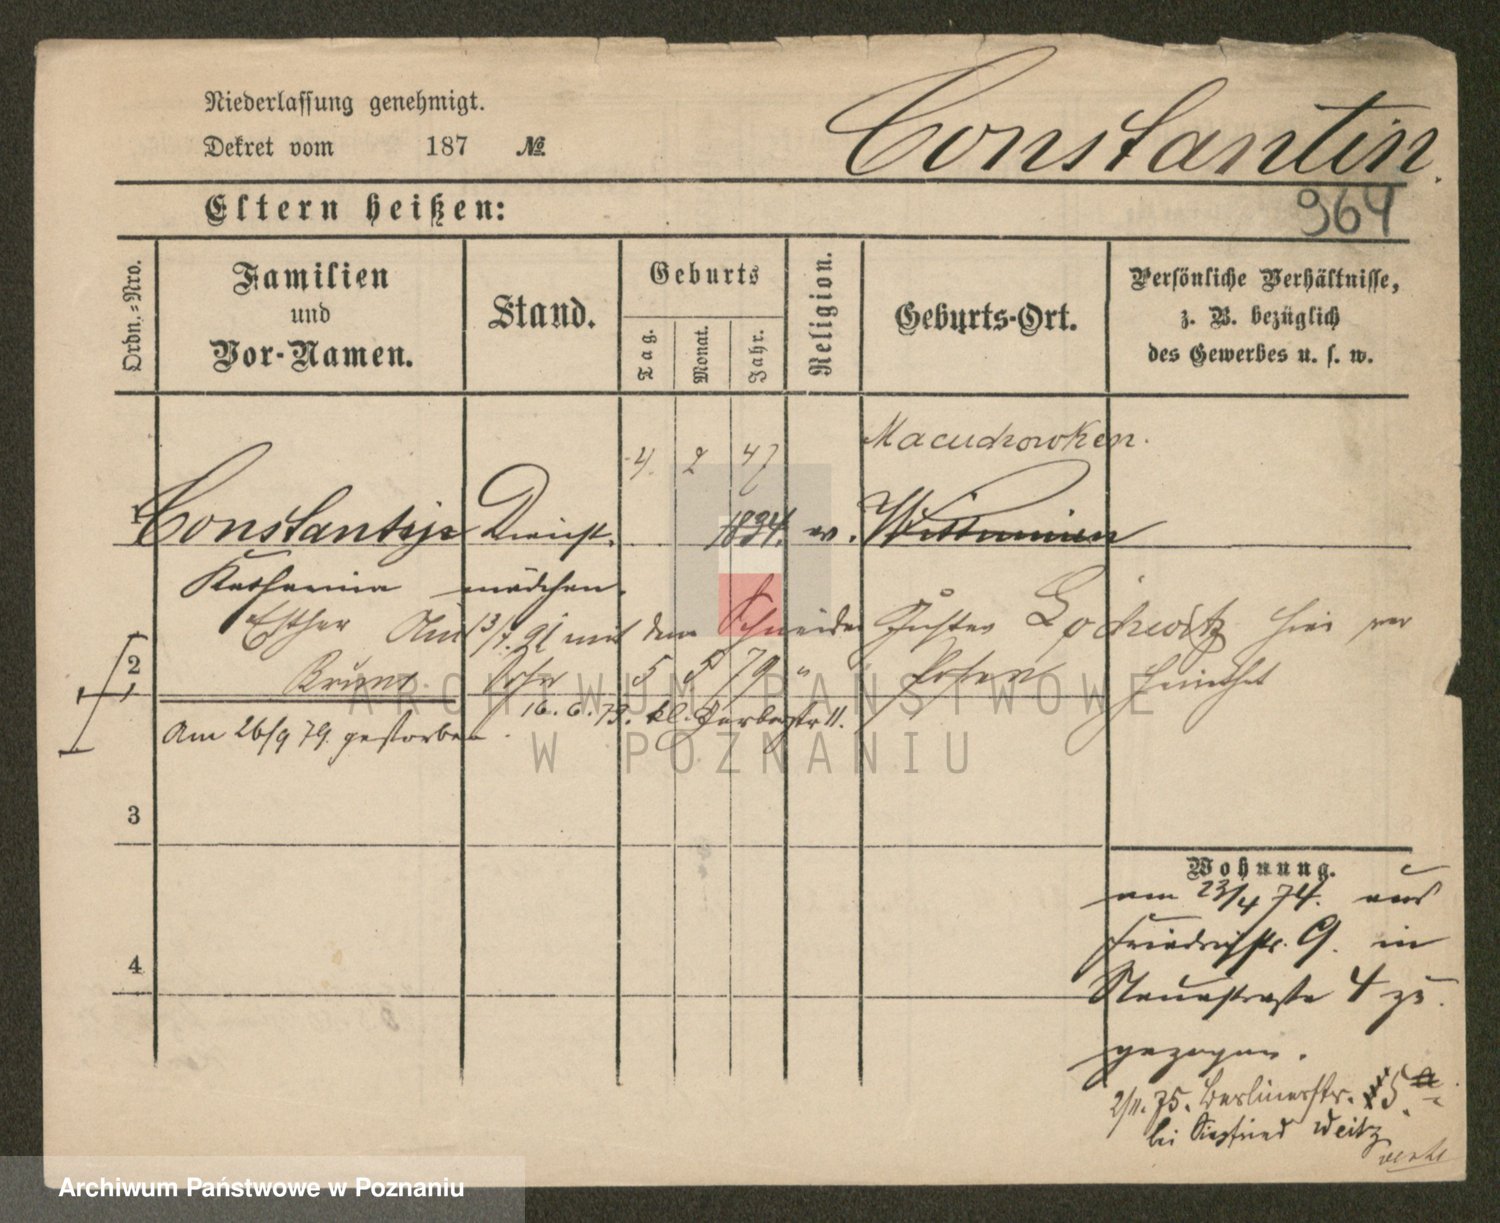 Niederlassung genehmigt.
Dekret vom 187 №
Constantin.
964
Eltern heißen:
Ordn.-Nro.
Familien
und
Vor-Namen.
Stand.
Geburts
Tag.
Monat.
Jahr.
Religion.
Geburts-Ort.
Persönliche Verhältnisse,
z. B. bezüglich
des Gewerbes u. s. w.
4. 2 47 Macudrowken.
1 Constantin Dienst. 1834. ev.
Katharina mädchen.
Esther Am 13/7. 91 mit dem Schneider Gustav hier ver
2 Bruno Sohn 5 5 79 " Posen heirathet
16. 6. 79. kl. Gerberstr 11.
Am 26/9 79. gestorben.
3
4
Wohnung.
am 23/4 74. aus
Friedrichstr. 9. in
4 zu
gezogen.
2/11. 75. Berlinerstr. 15.
bei Siegfried Weitz
ARCHIWUM PAŃSTWOWE
W POZNANIU
Archiwum Państwowe w Poznaniu